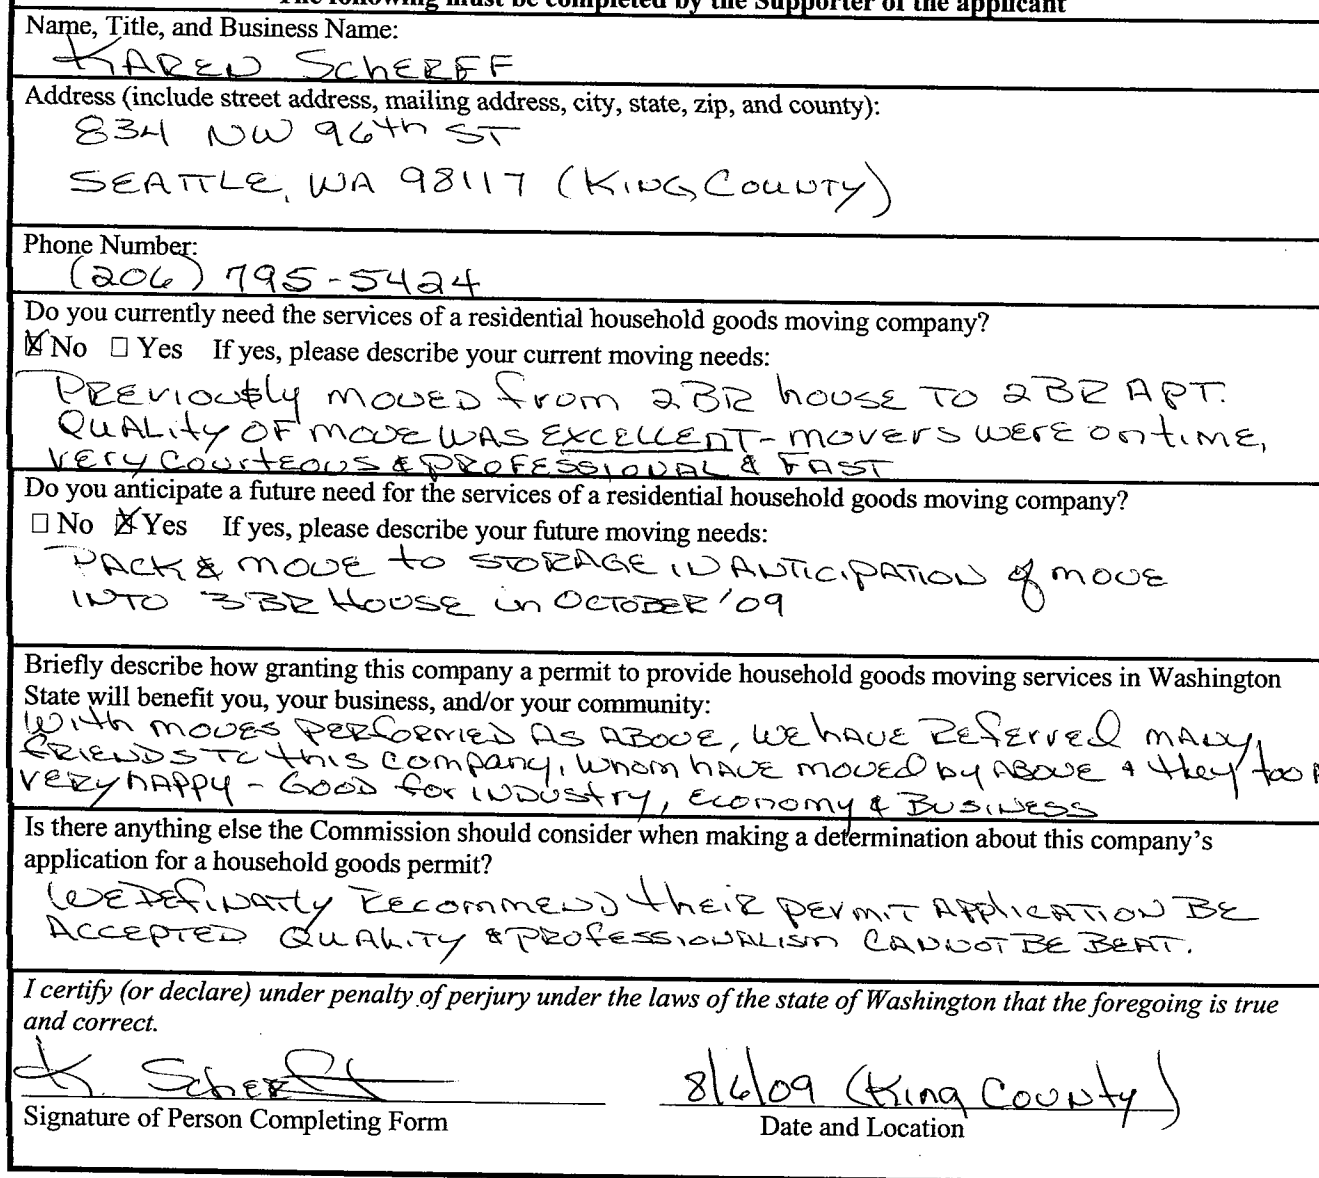 The following must be completed by the Supporter of the applicant
Name, Title, and Business Name:
KAREN SCHERFF
Address (include street address, mailing address, city, state, zip, and county):
834 NW 96th ST
SEATTLE, WA 98117 (KING COUNTY)
Phone Number:
(206) 795-5424
Do you currently need the services of a residential household goods moving company?
☒ No ☐ Yes If yes, please describe your current moving needs:
PREVIOUSly MOVED from 2BR house TO 2BR APT.
QUALITY OF MOVE WAS EXCELLENT - MOVERS WERE on time,
VERY COURTEOUS & PROFESSIONAL & FAST
Do you anticipate a future need for the services of a residential household goods moving company?
☐ No ☒ Yes If yes, please describe your future moving needs:
PACK & MOVE to STORAGE IN ANTICIPATION of MOVE
INTO 3BR HOUSE in OCTOBER '09
Briefly describe how granting this company a permit to provide household goods moving services in Washington
State will benefit you, your business, and/or your community:
With MOVES PERFORMED AS ABOVE, WE hAVE REferred MANY
FRIENDS TO this Company, whom hAVE moved by ABOVE & they too
VERY hAPPY - GOOD for INDUStry, Economy & BUSINESS
Is there anything else the Commission should consider when making a determination about this company's
application for a household goods permit?
WE DEFINATLy RECOMMEND their PERMIT APPLICATION BE
ACCEPTED QUALITY & PROFESSIONALISM CANNOT BE BEAT.
I certify (or declare) under penalty of perjury under the laws of the state of Washington that the foregoing is true
and correct.
K. Scherff
8/6/09 (King COUNTY)
Signature of Person Completing Form
Date and Location